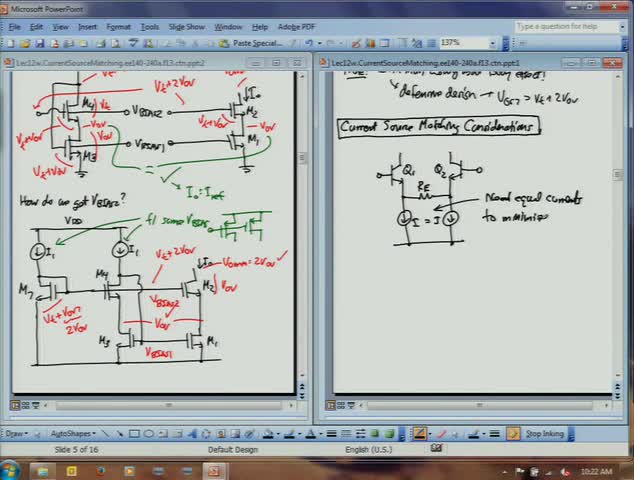 Microsoft PowerPoint
File Edit View Insert Format Tools Slide Show Window Help Adobe PDF
Type a question for help
Paste Special...
137%
Lec12w.CurrentSourceMatching.ee140-240a.f13.ctn.ppt:2
Lec12w.CurrentSourceMatching.ee140-240a.f13.ctn.ppt:1
Vt+2Vov
M4
Vt
VBIAS2
Io
M2
Vt+Vov
Vt+Vov
Vov
Vov
VBIAS1
M1
M3
Vt+Vov
= ✓ Io = Iref
How do we get VBIAS2?
VDD
f/ same VBIAS
I1
I1
Vt+2Vov
Io
Vomin = 2Vov ✓
M7
M4
M2
VBIAS2
Vov
Vt+Vov7
2Vov
Vov
M3
VBIAS1
M1
defensive design
Current Source Matching Considerations
Q1
Q2
RE
I = I
Need equal currents
to minimize
Draw AutoShapes
Stop Inking
Slide 5 of 16
Default Design
English (U.S.)
10:22 AM